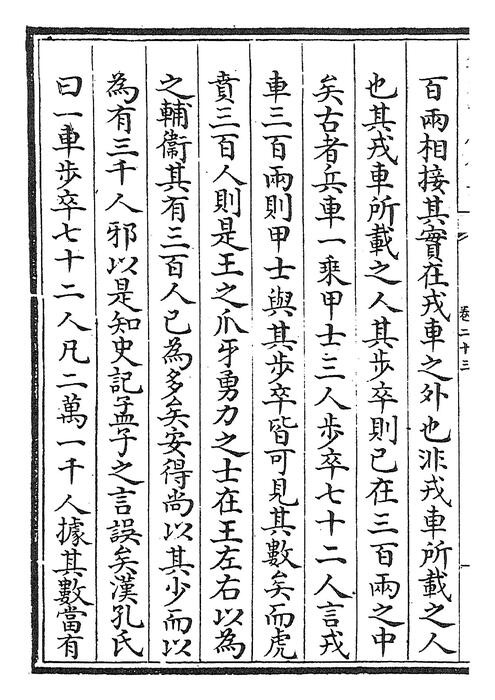 百兩相接其實在戎車之外也非戎車所載之人
也其戎車所載之人其步卒則已在三百兩之中
矣古者兵車一乘甲士三人步卒七十二人言戎
車三百兩則甲士與其步卒皆可見其數矣而虎
賁三百人則是王之爪牙勇力之士在王左右以為
之輔衞其有三百人已為多矣安得尚以其少而以
為有三千人邪以是知史記孟子之言誤矣漢孔氏
曰一車步卒七十二人凡二萬一千人據其數當有
卷二十三